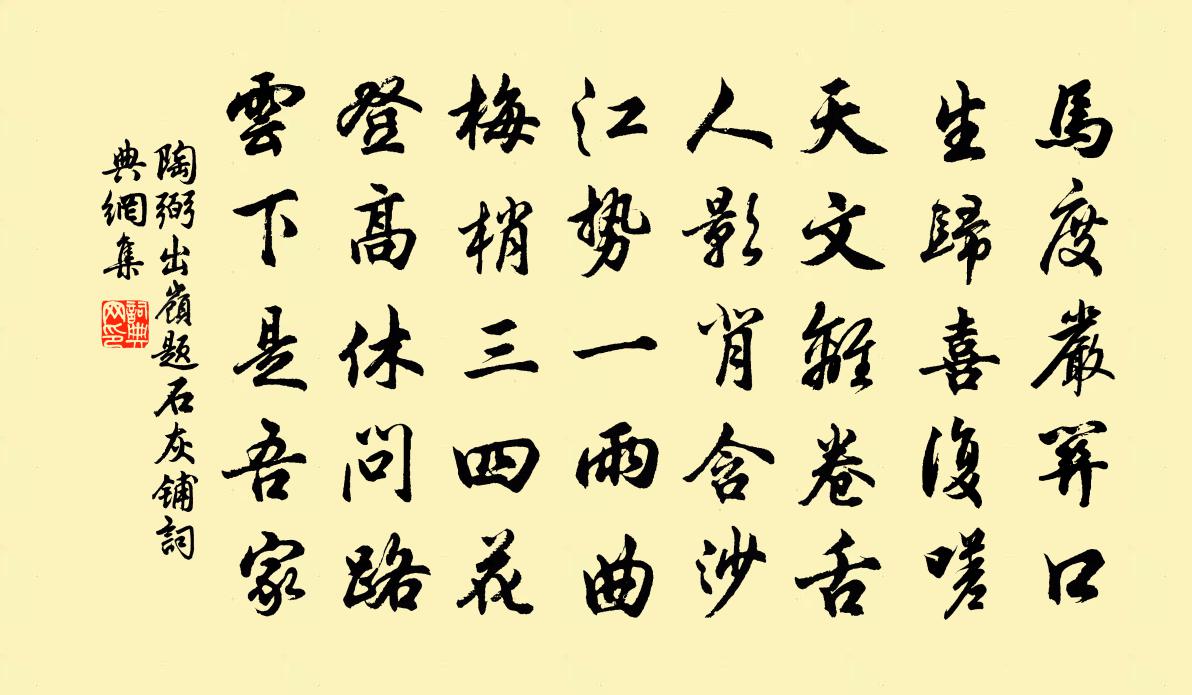 馬度嚴關口
生歸喜復嗟
天文離卷舌
人影背含沙
江势一兩曲
梅梢三四花
登高休問路
雲下是吾家
陶弼出嶺題石灰鋪詞
典網集
詞典网印